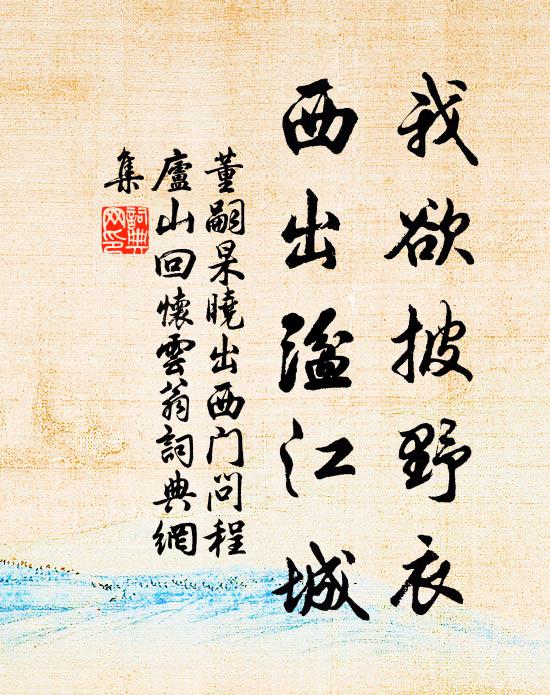 我欲披野衣
西出湓江城
董嗣杲曉出西门问程
廬山回懷雲翁詞典網
集
詞典網印